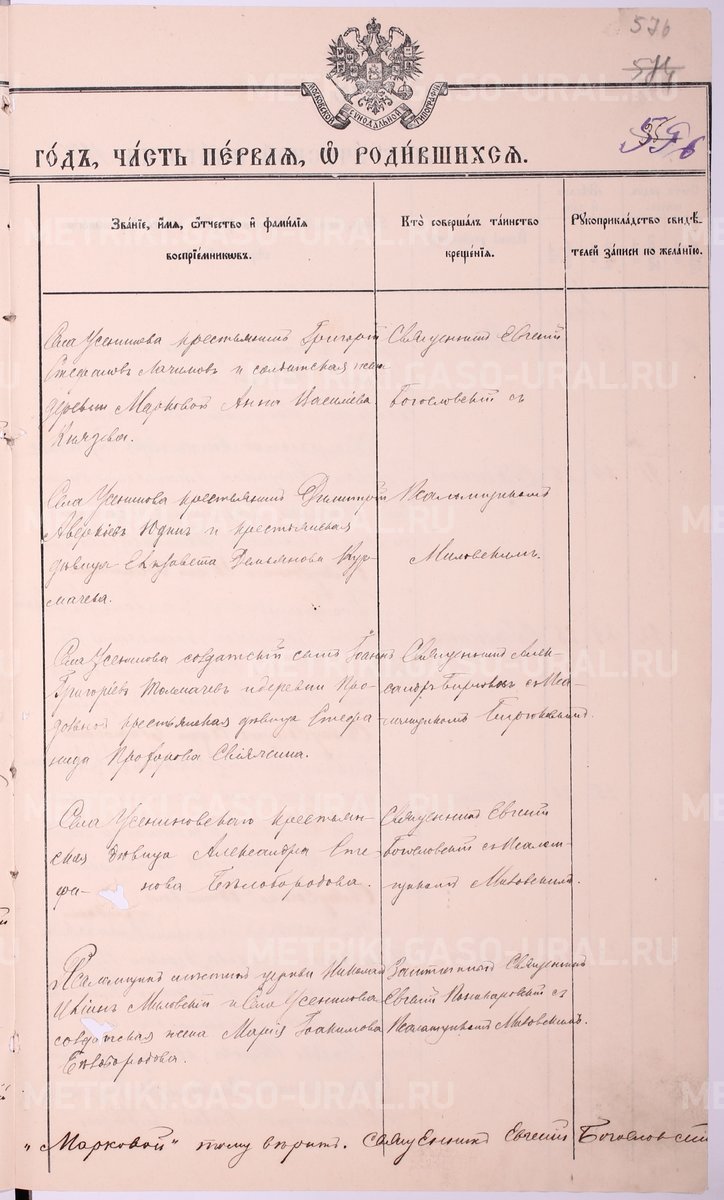 576
574
МОСКОВСКОЙ СѴНОДАЛЬНОЙ ТИПОГРАФІИ
ГО́ДЪ, ЧА́СТЬ ПЕ́РВАЯ, Ѽ РОДИ́ВШИХСЯ.
Зва́нїе, и҆́мя, ѻ҆́тчество и҆ фами́лїя
воспрїе́мникѡвъ.
Кто̀ соверша́лъ та́инство
креще́нїя.
Рꙋкоприкла́дство свидѣ́-
телей за́писи по жела́нїю.
Села Усенинова крестьянинъ Григорій
Стефановъ и солдатская жена
деревни Марковой Анна Василіева
Князева.
Священникъ Евгеній
Богословскій съ
Села Усенинова крестьянинъ Димитрій
Аверкіевъ Юдинъ и крестьянская
дѣвица Елизавета Демьянова Кур-
мачева.
Псаломщикомъ
Миловскимъ.
Села Усенинова солдатскій сынъ Іоаннъ
Григоріевъ Толмачевъ и деревни
крестьянская дѣвица Стефа-
нида Прохорова
Священникъ Алек-
сандръ съ Пса-
ломщикомъ
Села Усениновскаго крестьян-
ская дѣвица Александра Сте-
фа- нова Бѣлобородова.
Священникъ Евгеній
Богословскій съ Псалом-
щикомъ Миловскимъ.
Псаломщикъ мѣстной церкви Николай
Миловскій и Села Усенинова
солдатская жена Марія Іоакимова
Бѣлобородова.
Заштатный Священникъ
Евгеній Пономаревскій съ
Псаломщикомъ Миловскимъ.
„Марковой“ тому вѣрить. Священникъ Евгеній Богословскій
METRIKI.GASO-URAL.RU